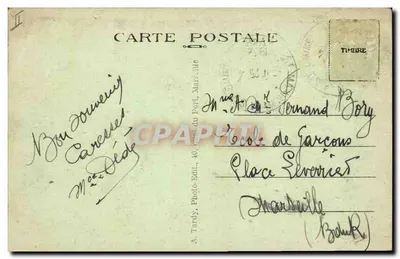 II
CARTE POSTALE
TIMBRE
Bon souvenir
Caresses
Dédé
A. Tardy, Photo-Edit., 40, Marseille
Fernand Bory
École de Garçons
Place Leverrier
Marseille
(BduR)
CARTE-POSTALE